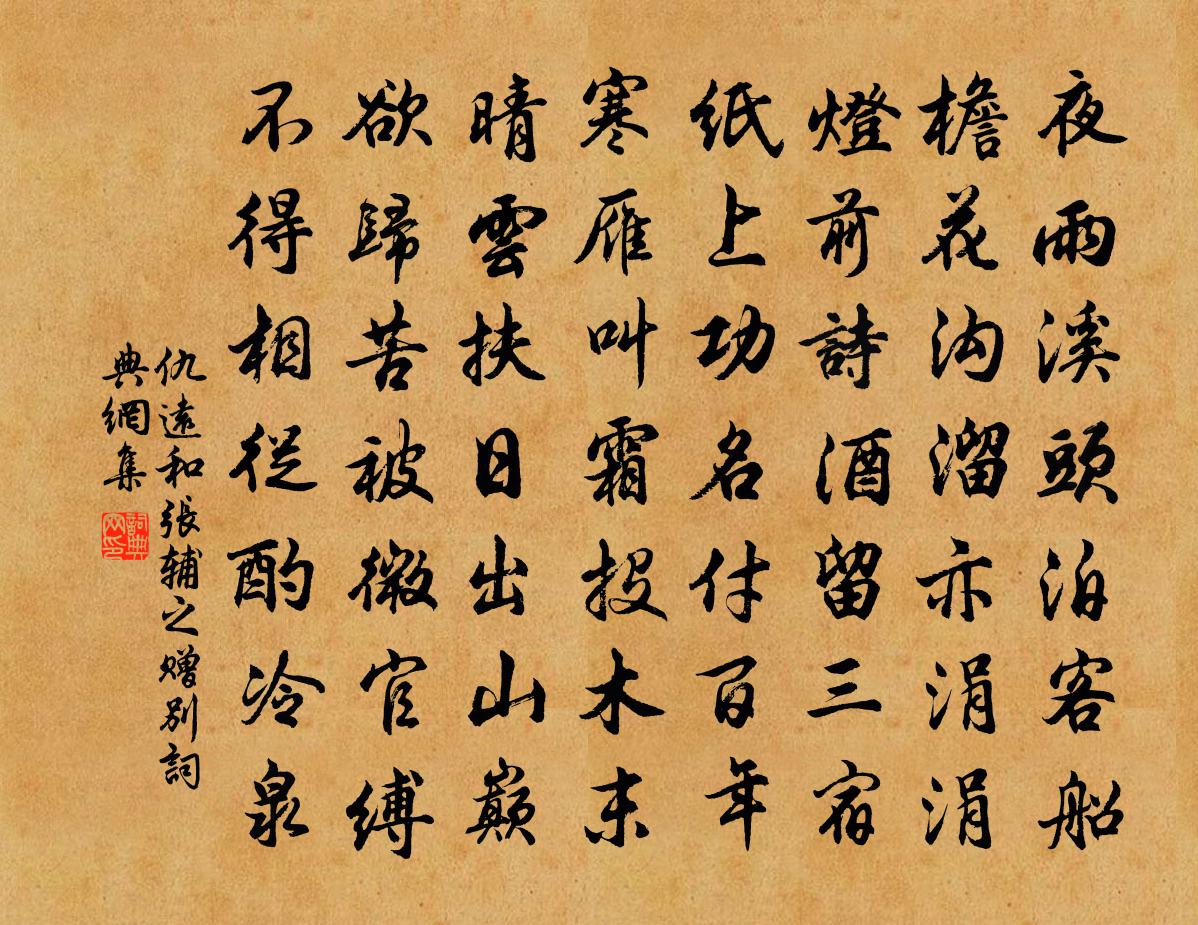 夜雨溪頭泊客船
檐花沟溜亦涓涓
燈前詩酒留三宿
紙上功名付百年
寒雁叫霜投木末
晴雲扶日出山巔
欲歸苦被微官縛
不得相從酌冷泉
仇遠和張辅之贈別詞
典網集
詞典网印